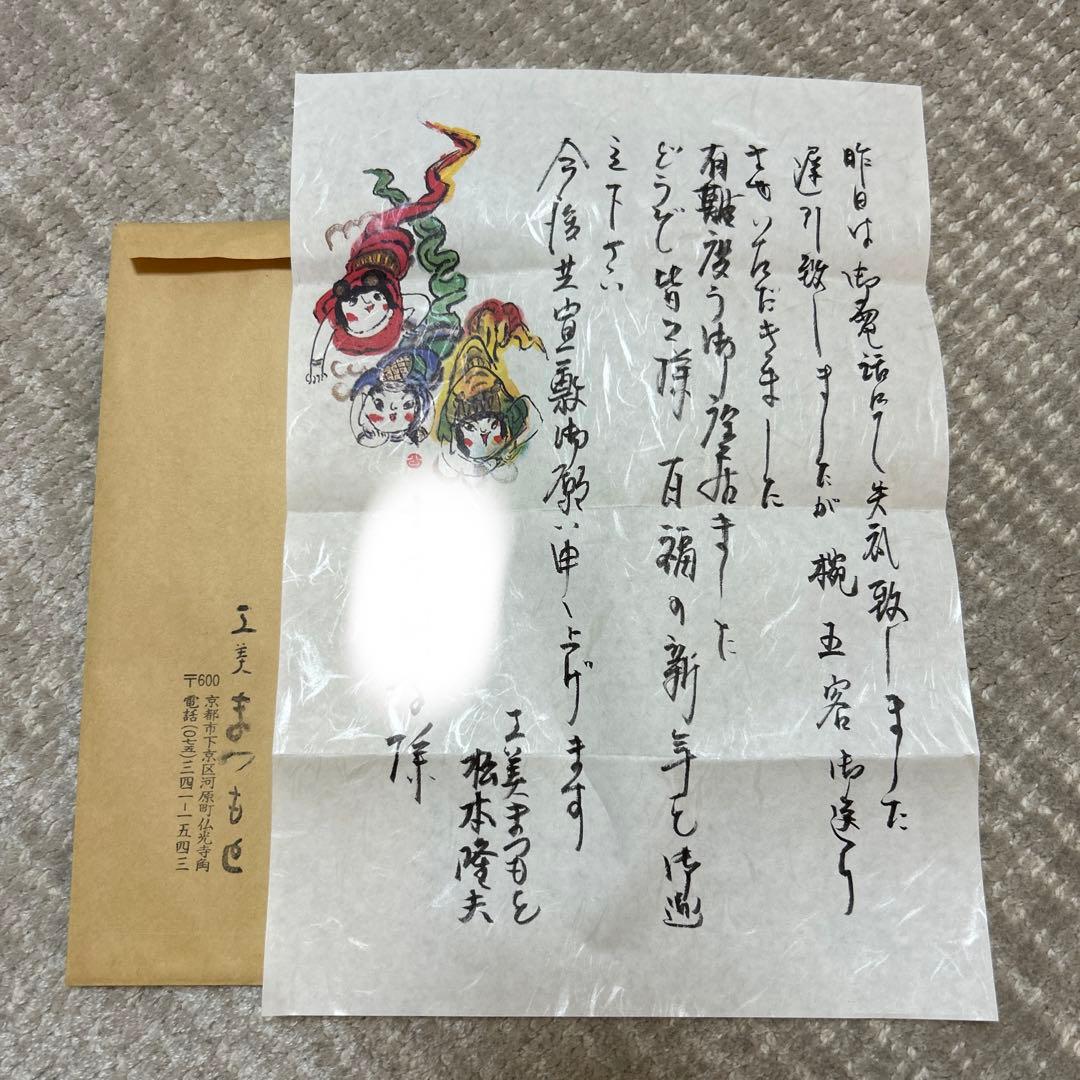 昨日は御電話にて失礼致しました
遅引致しましたが 椀 五客 御送り
させいただきました
有難度う御座居ました
どうぞ皆々様 百福の新年を御迎
え下さい
今後共宜敷御願い申し上げます
工美まつもと
松本隆夫
様
工美まつもと
〒600 京都市下京区河原町仏光寺角
電話(〇七五)三四一-一五四三